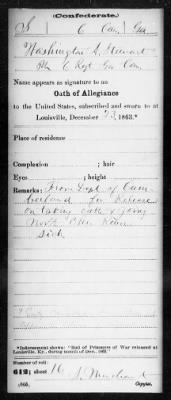 (Confederate.)
S 6 Cav. Ga
Washington S. Stewart
6 Regt Ga Cav.
Name appears as signature to an
Oath of Allegiance
to the United States, subscribed and sworn to at
Louisville, December 23, 1863.*
Place of residence
Complexion ; hair
Eyes ; height
Remarks: From Dept of Cum-
berland for Release
on taking oath &
North Ohio River
Sick
*Indorsement shows: "Roll of Prisoners of War released at
Louisville, Ky., during month of Dec. 1863."
Number of roll:
612; sheet 16
(865) Copyist.